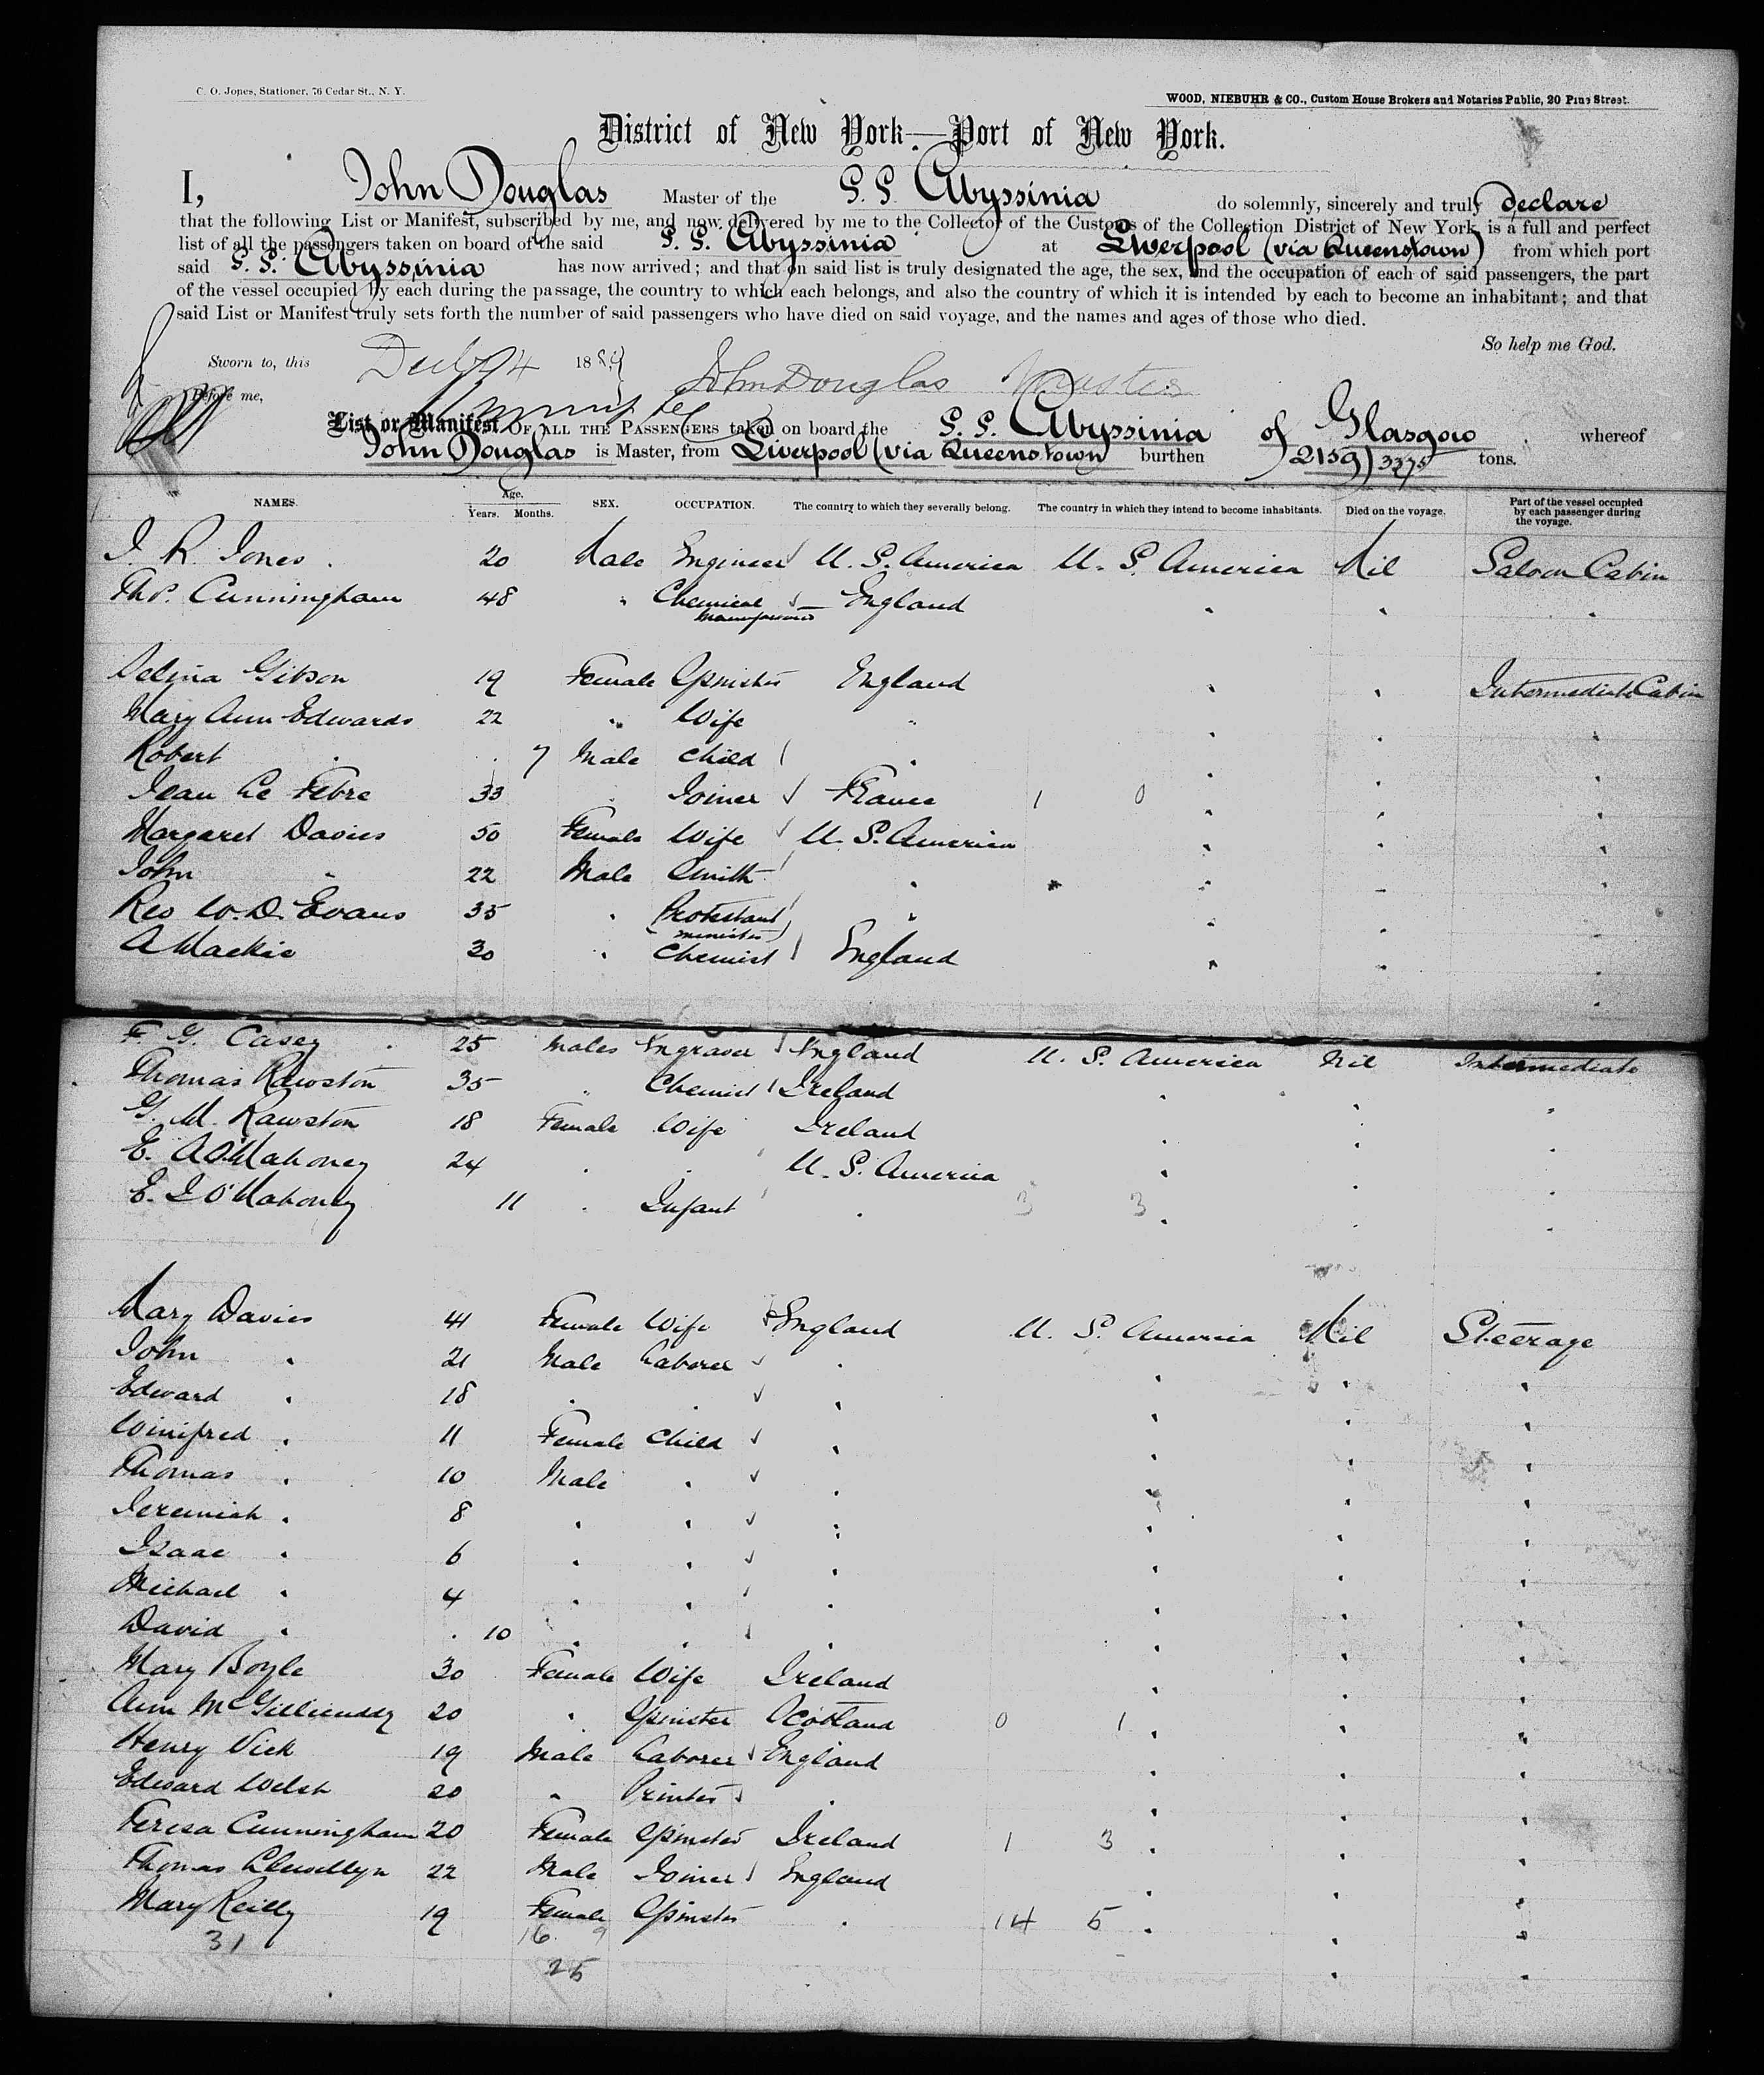 C. O. Jones, Stationer, 76 Cedar St., N. Y.
WOOD, NIEBUHR & CO., Custom House Brokers and Notaries Public, 20 Pine Street.
District of New York—Port of New York.
I, John Douglas Master of the S. S. Abyssinia do solemnly, sincerely and truly declare
that the following List or Manifest, subscribed by me, and now delivered by me to the Collector of the Customs of the Collection District of New York, is a full and perfect
list of all the passengers taken on board of the said S. S. Abyssinia at Liverpool (via Queenstown) from which port
said S. S. Abyssinia has now arrived; and that on said list is truly designated the age, the sex, and the occupation of each of said passengers, the part
of the vessel occupied by each during the passage, the country to which each belongs, and also the country of which it is intended by each to become an inhabitant; and that
said List or Manifest truly sets forth the number of said passengers who have died on said voyage, and the names and ages of those who died.
So help me God.
Sworn to, this 188 John Douglas Master
Before me,
List or Manifest OF ALL THE PASSENGERS taken on board the S. S. Abyssinia of Glasgow whereof
John Douglas is Master, from Liverpool (via Queenstown) burthen 2159/3375 tons.
NAMES. Age. Years. Months. SEX. OCCUPATION. The country to which they severally belong. The country in which they intend to become inhabitants. Died on the voyage. Part of the vessel occupied by each passenger during the voyage.
J. R. Jones 20 Male Engineer U. S. America U. S. America Nil Saloon Cabin
Thos. Cunningham 48 " Chemical England " " "
Selina Gibson 19 Female Spinster England " " Intermediate Cabin
Mary Ann Edwards 22 " Wife " " " "
Robert " 7 Male Child " " " "
Jean Le Febre 33 " Joiner France 1 0 " " "
Margaret Davies 50 Female Wife U. S. America " " "
John " 22 Male Smith " " " "
Rev W. D. Evans 35 " Protestant minister " " " "
A Mackie 30 " Chemist England " " "
F. G. Casey 25 Males Engraver England U. S. America Nil Intermediate
Thomas Rawston 35 " Chemist Ireland " " "
G. M. Rawston 18 Female Wife Ireland " " "
E. A O'Mahoney 24 " " U. S. America " " "
E. J O'Mahoney 11 " Infant " 3 3 " " "
Mary Davies 41 Female Wife England U. S. America Nil Steerage
John " 21 Male Laborer " " " "
Edward " 18 " " " " " "
Winifred " 11 Female Child " " " "
Thomas " 10 Male " " " " "
Jeremiah " 8 " " " " " "
Isaac " 6 " " " " " "
Michael " 4 " " " " " "
David " 10 " " " " " "
Mary Boyle 30 Female Wife Ireland " " "
Ann McGillicuddy 20 " Spinster Scotland 0 1 " " "
Henry Vick 19 Male Laborer England " " "
Edward Welsh 20 " Printer " " " "
Teresa Cunningham 20 Female Spinster Ireland 1 3 " " "
Thomas Llewellyn 22 Male Joiner England " " "
Mary Reilly 19 Female Spinster " 14 5 " " "
31 16 9
25